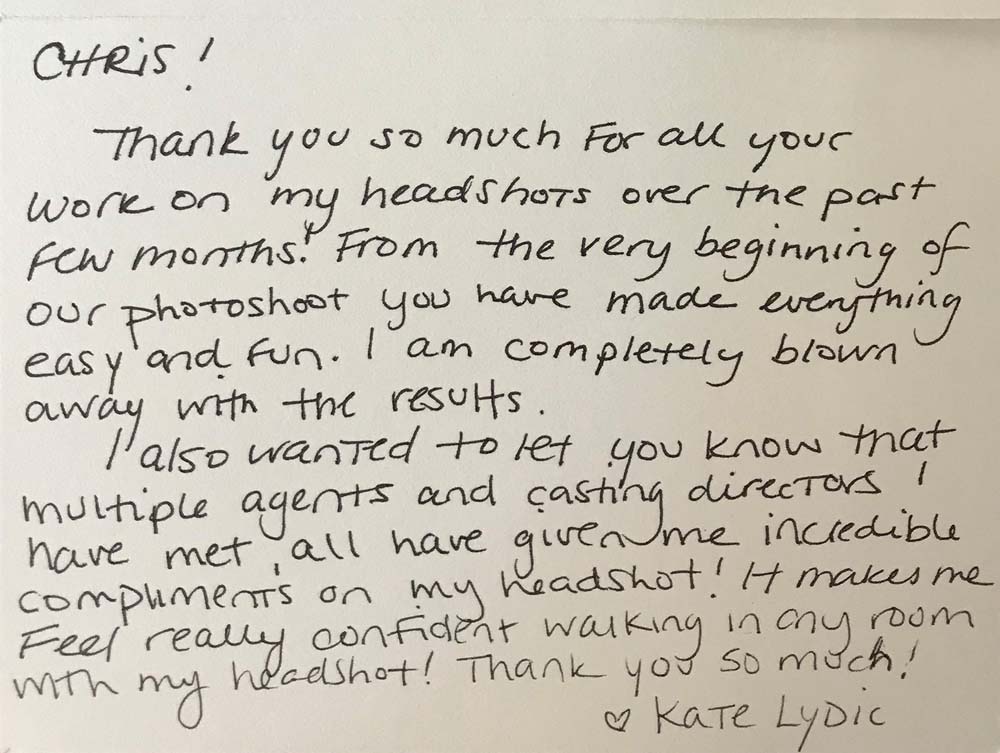 CHRIS!
Thank you so much For all your
work on my headshots over the past
few months! From the very beginning of
our photoshoot you have made everything
easy and fun. I am completely blown
away with the results.
I also wanted to let you know that
multiple agents and casting directors I
have met, all have given me incredible
compliments on my headshot! It makes me
Feel really confident walking in any room
with my headshot! Thank you so much!
♡ Kate Lydic